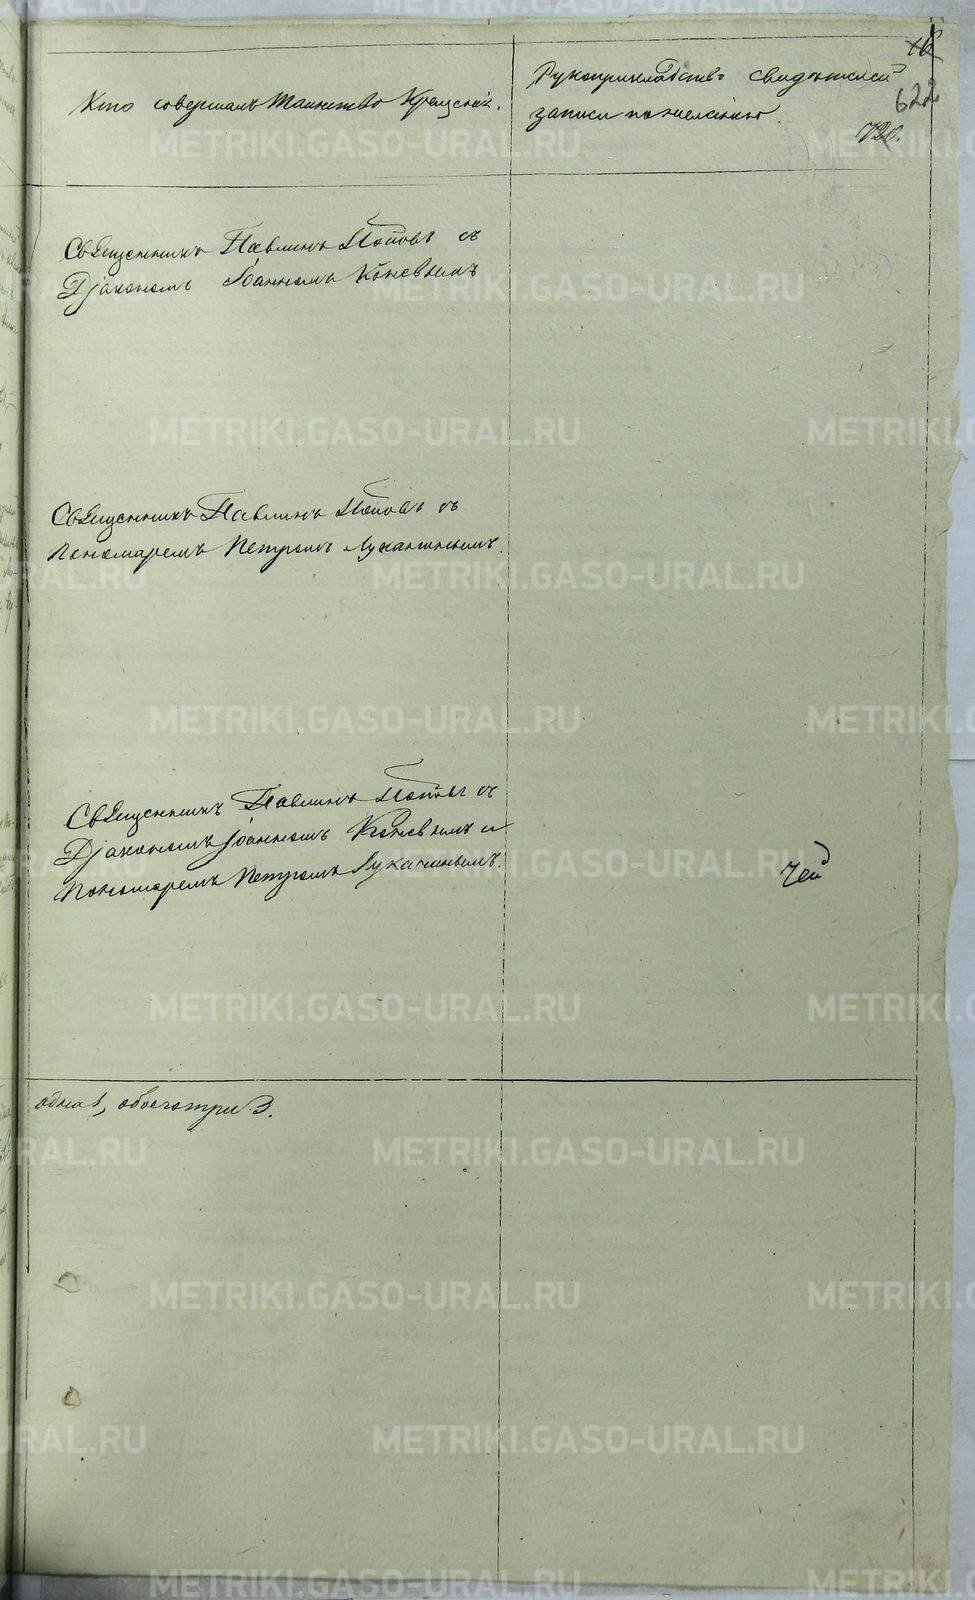 16
622
720.
Кто совершалъ таинство Крещенія.
Рукоприкладство свидѣтелей
записи по желанію
Священникъ Павлинъ Поповъ съ
Діакономъ Іоанномъ Коневымъ
Священникъ Павлинъ Поповъ съ
Пономаремъ Петромъ Лукашинымъ.
Священникъ Павлинъ Поповъ съ
Діакономъ Іоанномъ Коневымъ и
Пономаремъ Петромъ Лукашинымъ.
одна 1, обоего три 3.
METRIKI.GASO-URAL.RU